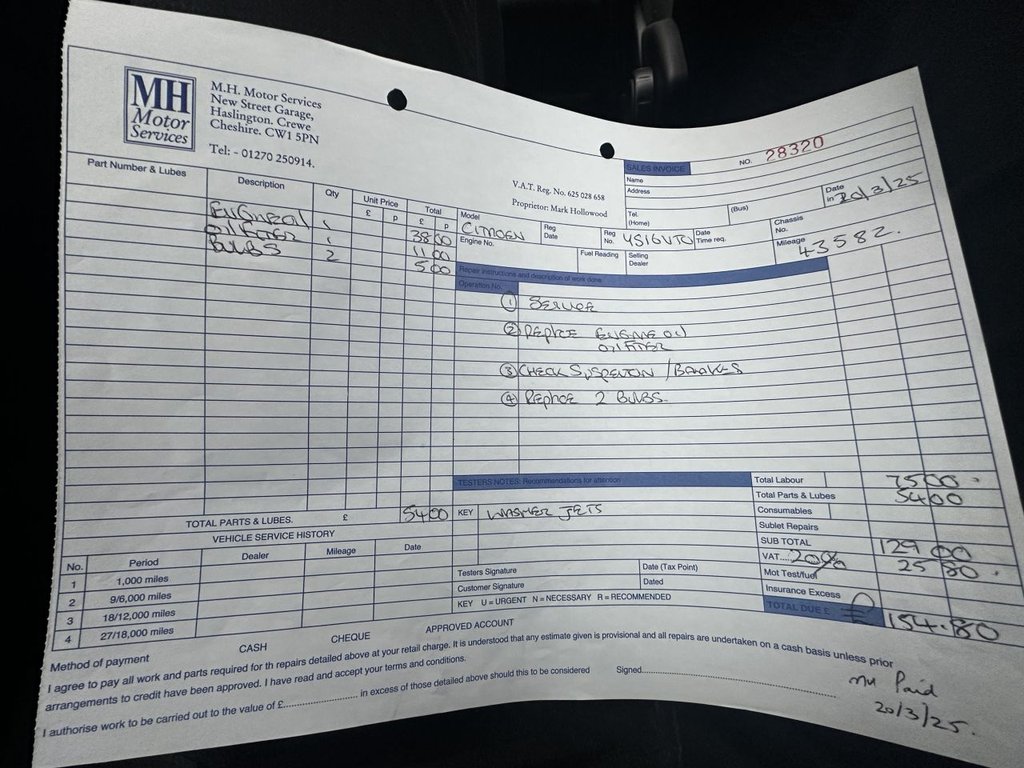 MH
Motor
Services
M.H. Motor Services
New Street Garage,
Haslington. Crewe
Cheshire. CW1 5PN
Tel: - 01270 250914.
V.A.T. Reg. No. 625 028 658
Proprietor: Mark Hollowood
SALES INVOICE NO. 28320
Name
Address
Tel. (Home) (Bus)
Date in 20/3/25
Model CITROEN Reg Date Reg No. Date Time req. Chassis No.
Engine No. Fuel Reading Selling Dealer Mileage 43582.
Part Number & Lubes Description Qty Unit Price £ p Total £ p
ENGINEOIL 1 38 00
OILFILTER 1 11 00
BULBS 2 5 00
Repair instructions and description of work done
Operation No.
1 SERVICE
2 REPLACE ENGINE OIL
OILFILTER
3 CHECK SUSPENTION / BRAKES
4 REPLACE 2 BULBS.
TOTAL PARTS & LUBES. £ 54 00
TESTERS NOTES: Recommendations for attention
KEY WASHER JETS
Testers Signature Date (Tax Point)
Customer Signature Dated
KEY U = URGENT N = NECESSARY R = RECOMMENDED
Total Labour 75 00
Total Parts & Lubes 54 00
Consumables
Sublet Repairs
SUB TOTAL 129 00
VAT.... 20% 25 80
Mot Test/fuel
Insurance Excess
TOTAL DUE £ £154.80
VEHICLE SERVICE HISTORY
No. Period Dealer Mileage Date
1 1,000 miles
2 9/6,000 miles
3 18/12,000 miles
4 27/18,000 miles
Method of payment CASH CHEQUE APPROVED ACCOUNT
I agree to pay all work and parts required for th repairs detailed above at your retail charge. It is understood that any estimate given is provisional and all repairs are undertaken on a cash basis unless prior
arrangements to credit have been approved. I have read and accept your terms and conditions.
I authorise work to be carried out to the value of £.................... in excess of those detailed above should this to be considered Signed....................
Paid
20/3/25.